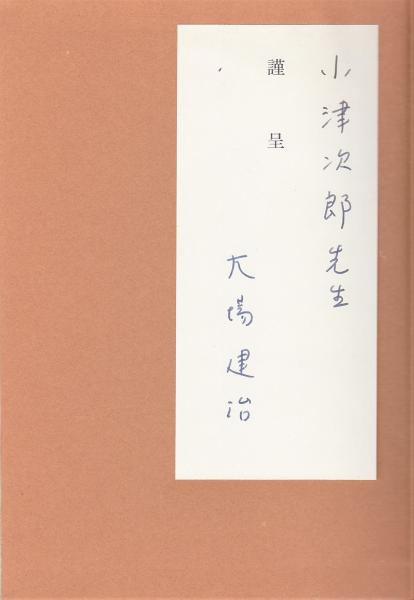 小津次郎先生
謹呈
大場建治